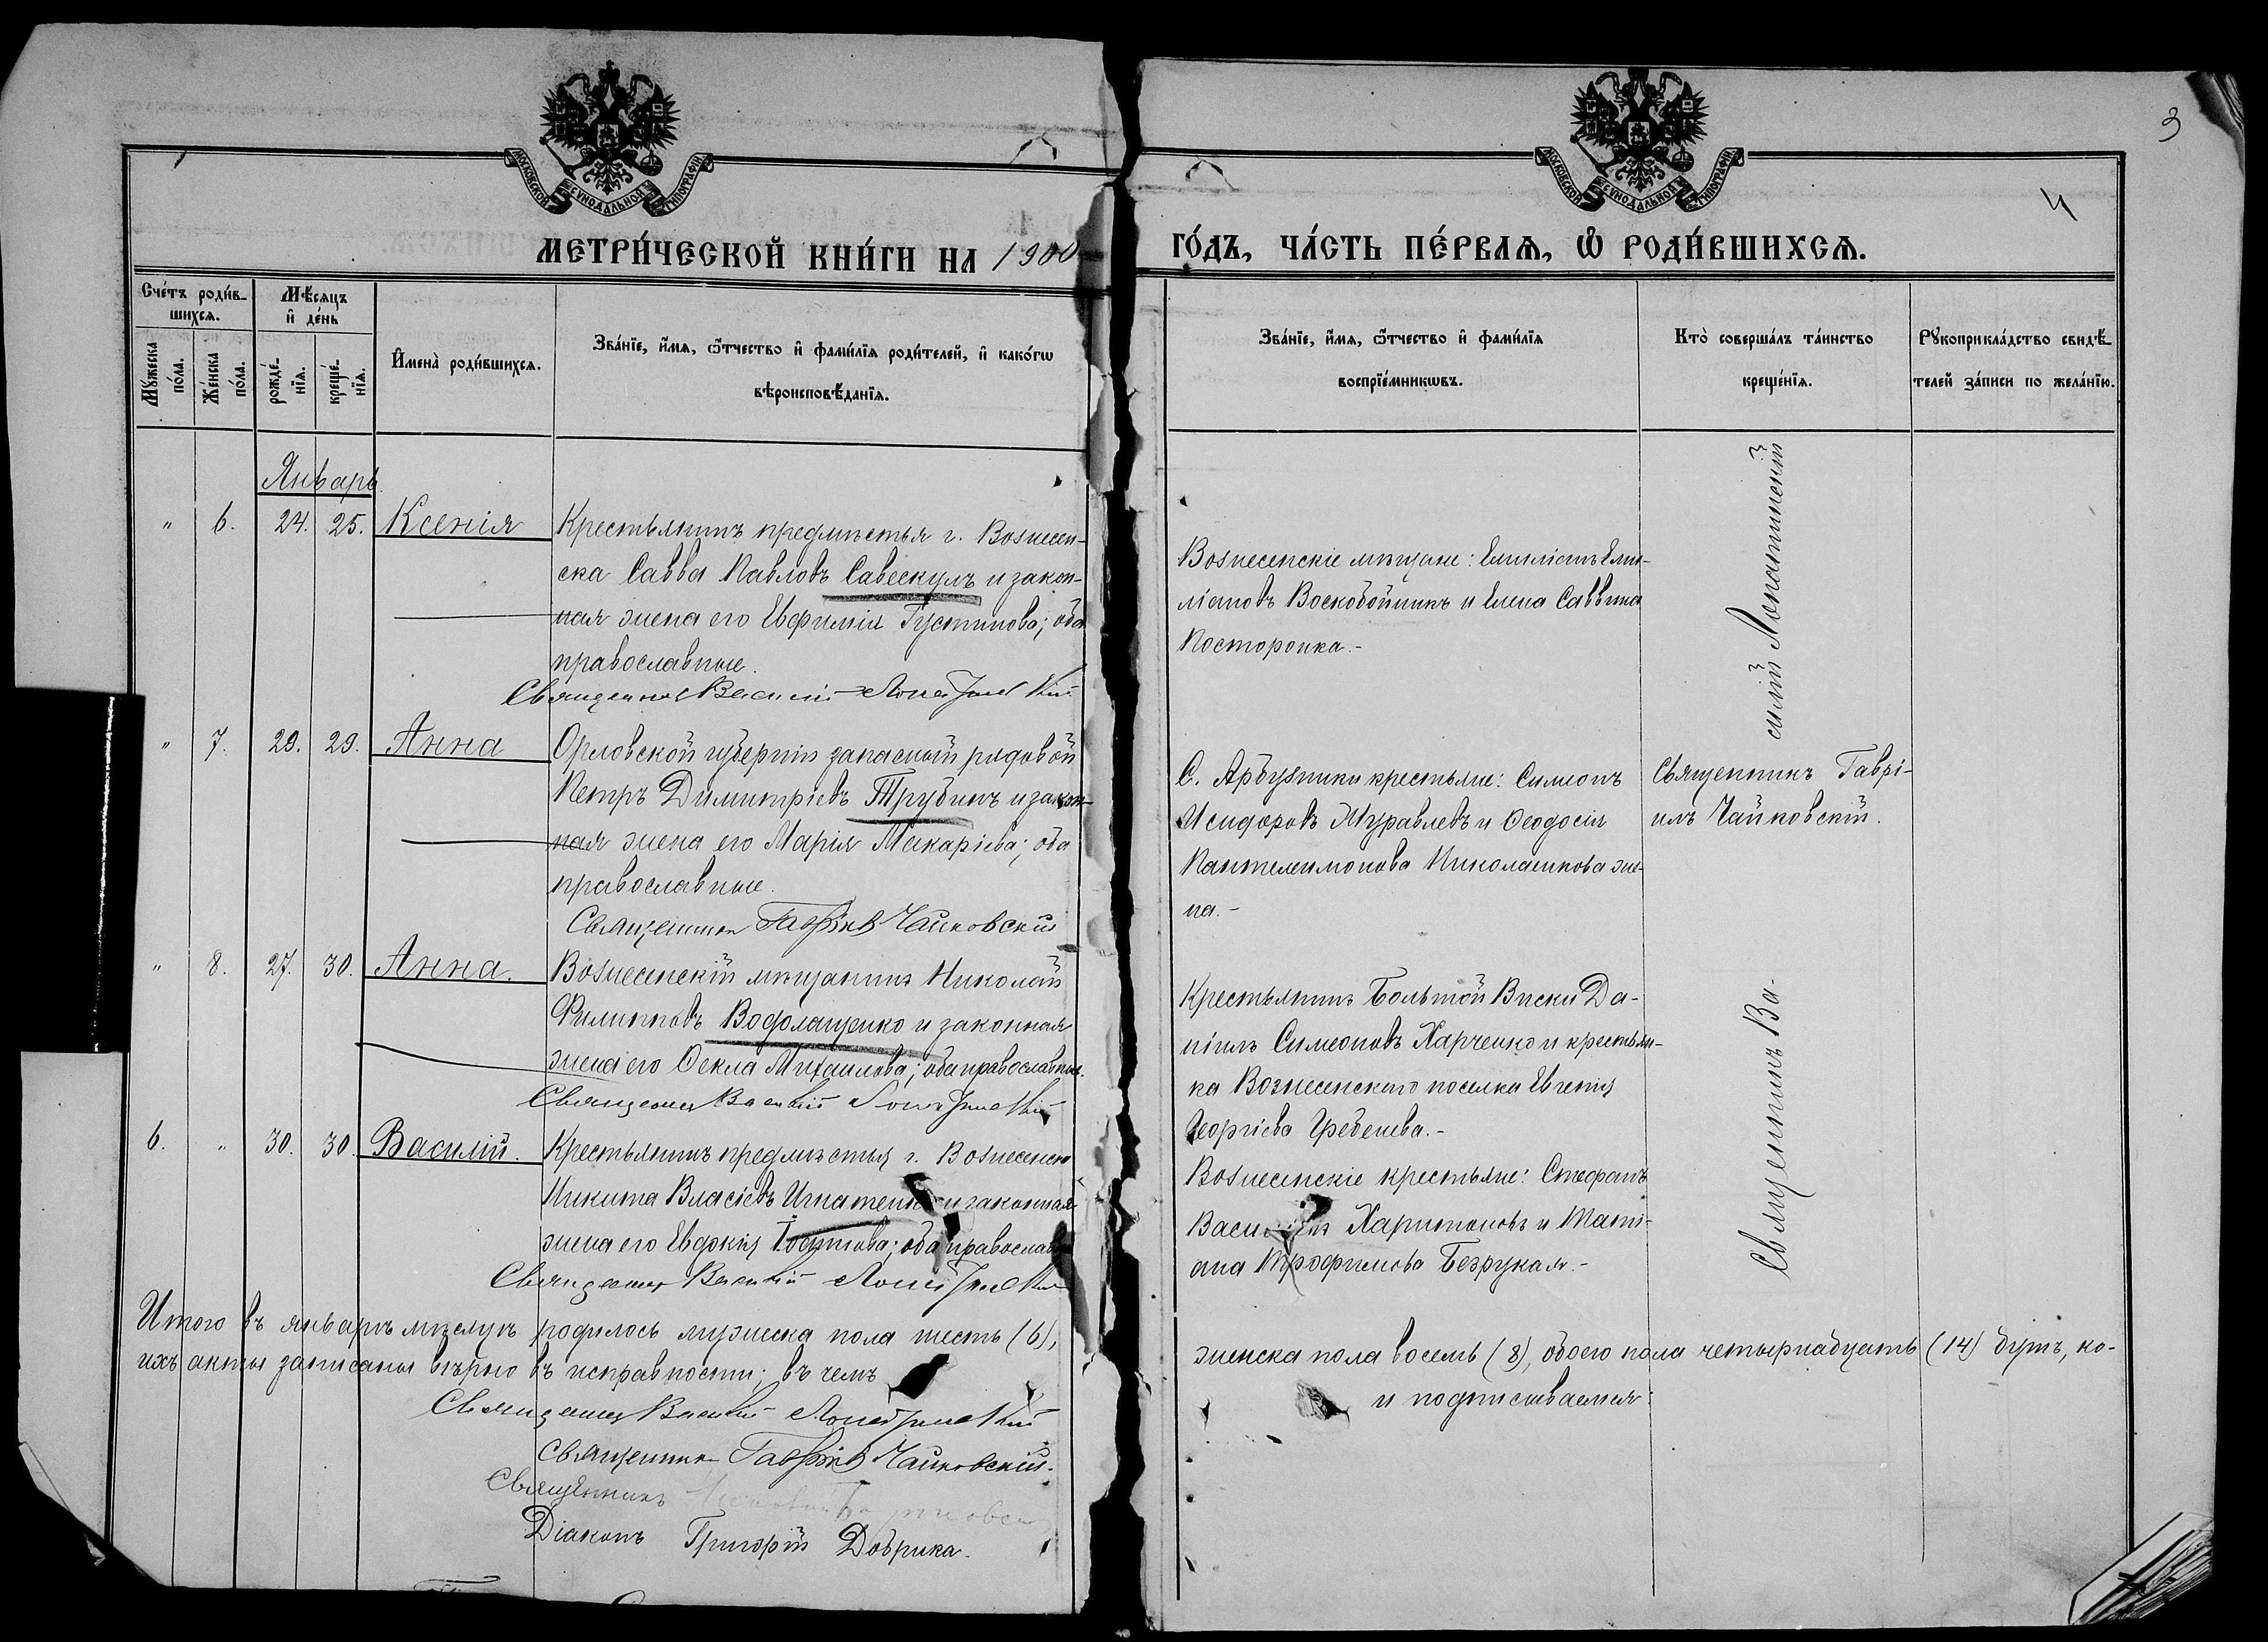 3
4
МОСКОВСКОЙ СѴНОДАЛЬНОЙ ТИПОГРАФІИ
МОСКОВСКОЙ СѴНОДАЛЬНОЙ ТИПОГРАФІИ
МЕТРИ́ЧЕСКОЙ КНИ́ГИ НА 1900
ГО́ДЪ, ЧА́СТЬ ПЕ́РВАѦ, Ѡ҆ РОДИ́ВШИХСѦ.
Сче́тъ роди́в-
шихсѧ.
Мѣ́сѧцъ
и҆ де́нь
Мꙋ́жеска
по́ла.
Же́нска
по́ла.
рожде́-
нїѧ.
креще́-
нїѧ.
И҆мена̀ роди́вшихсѧ.
Зва́нїе, и҆́мѧ, ѻ҆́тчество и҆ фами́лїѧ роди́телей, и҆ како́гѡ
вѣроисповѣ́данїѧ.
Зва́нїе, и҆́мѧ, ѻ҆́тчество и҆ фами́лїѧ
воспрїе́мникѡвъ.
Кто̀ соверша́лъ та́инство
креще́нїѧ.
Рꙋкоприкла́дство свидѣ́-
телей за́писи по жела́нїю.
Январь
" 6. 24. 25. Ксенія
Крестьянинъ предмѣстья г. Вознесен-
ска Савва Павловъ Савескулъ и закон-
ная жена его Евфимія Густинова; оба
православные.
Священникъ Василій Лопатинскій
Вознесенскіе мѣщане: Емиліанъ Еми-
ліановъ Воскобойникъ и Елена Саввина
Посторонка.-
" 7. 29. 29. Анна
Орловской губерніи запасный рядовой
Петръ Димитріевъ Трубинъ и закон-
ная жена его Марія Макаріева; оба
православные.
Священникъ Гавріилъ Чайковскій
С. Арбузинки крестьяне: Симеонъ
Исидоровъ Журавлевъ и Ѳеодосія
Пантелеимонова Николаенкова же-
на.-
Священникъ Гаврі-
илъ Чайковскій.
" 8. 27. 30. Анна.
Вознесенскій мѣщанинъ Николай
Филипповъ Водолащенко и законная
жена его Ѳекла Михаилова; оба православные.
Священникъ Василій Лопатинскій
Крестьянинъ Большой Виски Да-
ніилъ Симеоновъ Харченко и крестьян-
ка Вознесенскаго поселка Евгенія
Георгіева Гребенева.-
6. " 30. 30. Василій.
Крестьянинъ предмѣстья г. Вознесенска
Никита Власіевъ Игнатенко и законная
жена его Евдокія; оба православ
Священникъ Василій Лопатинскій
Вознесенскіе крестьяне: Стефанъ
Харитоновъ и Тати-
ана Трофимова Безрукая.-
Священникъ Ва-
силій Лопатинскій
Итого въ январѣ мѣсяцѣ родилось мужеска пола шесть (6),
женска пола восемь (8), обоего пола четырнадцать (14) душъ, ко-
ихъ акты записаны вѣрно въ исправности; въ чемъ
и подписываемся:
Священникъ Василій Лопатинскій
Священникъ Гавріилъ Чайковскій.
Священникъ
Діаконъ Григорій Добрика.